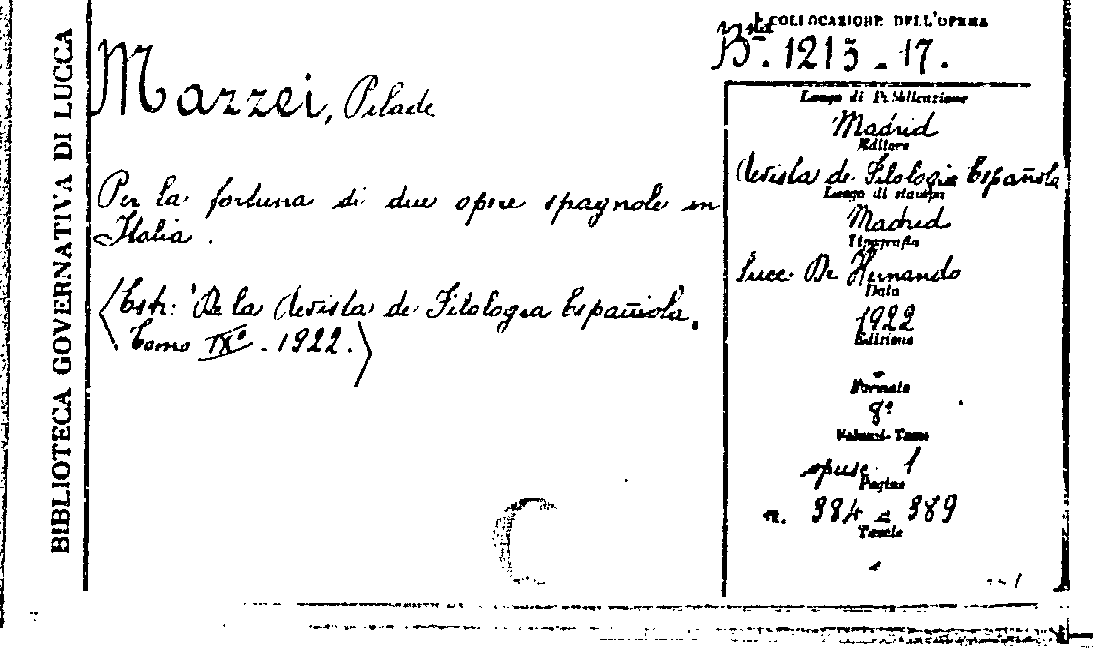 BIBLIOTECA GOVERNATIVA DI LUCCA
Mazzei, Pilade
Per la fortuna di due opere spagnole in
Italia.
(Estr: De la Revista de Filologia Española.
Tomo IXº. 1922.)
COLLOCAZIONE DELL'OPERA
Bta. 1213-17.
Luogo di Pubblicazione
Madrid
Editore
Revista de Filologia Española
Luogo di stampa
Madrid
Tipografia
Succ. De Hernando
Data
1922
Edizione
-
Formato
8º
Volumi-Tomo
opusc. 1
Pagine
n. 384 a 389
Tavole